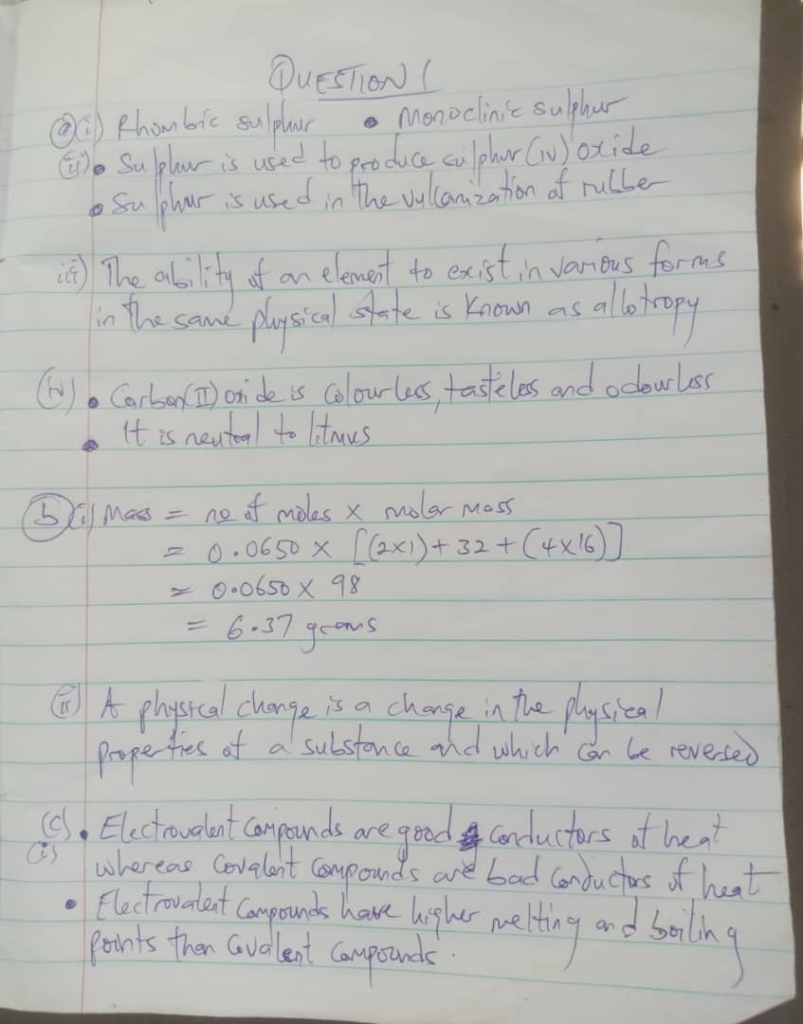 QUESTION 1
(a)(i) Rhombic sulphur • Monoclinic sulphur
(ii) • Sulphur is used to produce sulphur (iv) oxide
• Sulphur is used in the vulcanization of rubber
iii) The ability of an element to exist in various forms
in the same physical state is known as allotropy
(iv) • Carbon(II) oxide is colourless, tasteless and odourless
• It is neutral to litmus
(b)(i) Mass = no of moles x molar mass
= 0.0650 x [(2x1) + 32 + (4x16)]
= 0.0650 x 98
= 6.37 grams
(ii) A physical change is a change in the physical
properties of a substance and which can be reversed
(c) • Electrovalent compounds are good conductors of heat
(i) whereas covalent compounds are bad conductors of heat
• Electrovalent compounds have higher melting and boiling
points than covalent compounds.